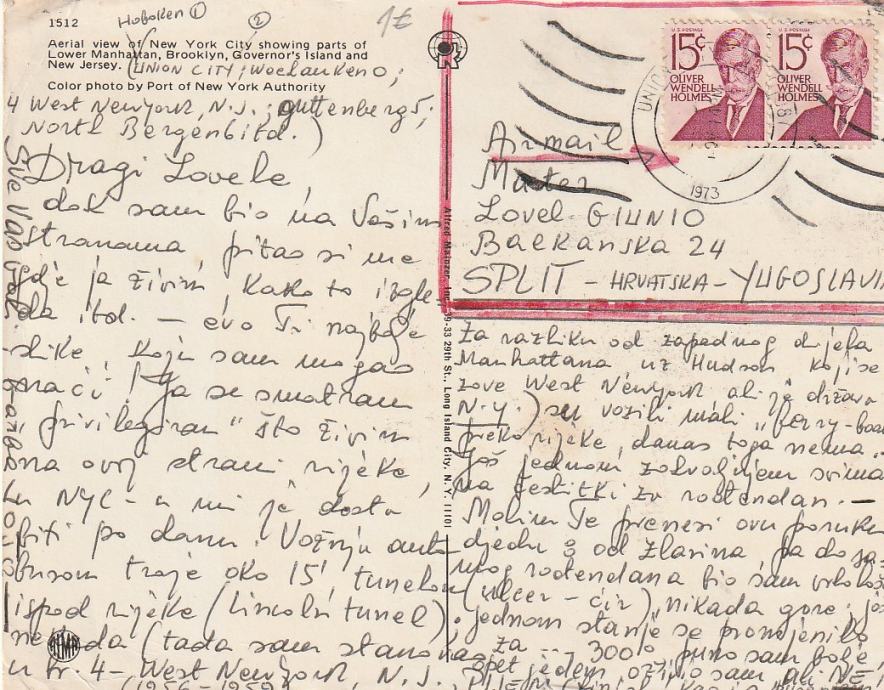 1512
Hoboken ① ②
Aerial view of New York City showing parts of
Lower Manhattan, Brooklyn, Governor's Island and
New Jersey. (UNION CITY;
Color photo by Port of New York Authority
4 West New York, N.J.; guttenberg 5;
North Bergen 6 itd.)
Dragi Lovele,
dok sam bio na Vašim
stranama pitao si me
gdje ja živim, kako to izgle-
da itd. – evo Ti najbolje
slike koju sam mogao
naći! Ja se smatram
"privilegiran" što živim
na ovoj strani rijeke,
u NYC-u mi je dosta
biti po danu. Vožnja auto
busom traje oko 15' tunelom
ispod rijeke (Lincoln tunel)
nekada (tada sam stanovao
u br. 4 – West New York, N.J.
(1956-1959
Sve Vas voli
Barba
1€
Alfred Mainzer, Inc., 39-33 29th St., Long Island City, N. Y. 11101
ALMA
15¢
U.S. POSTAGE
OLIVER
WENDELL
HOLMES
15¢
U.S. POSTAGE
OLIVER
WENDELL
HOLMES
UNION
1973
Airmail
Lovel GIUNIO
Balkanska 24
SPLIT – HRVATSKA – YUGOSLAVIA
Za razliku od zapadnog dijela
Manhattana uz Hudson koji se
zove West New York ali je država
N.Y.) su vozili mali "ferry-boat
preko rijeke, danas toga nema.
Još jednom zahvaljujem svima
na čestitki za rođendan. –
Molim Te prenesi ovu poruku
djedu: od Zlarina pa do sa-
mog rođendana bio sam vrlo loš
(ulcer – čir), nikada gore, još
jednom stanje se promijenilo
za 300% puno sam bolje
opet jedem